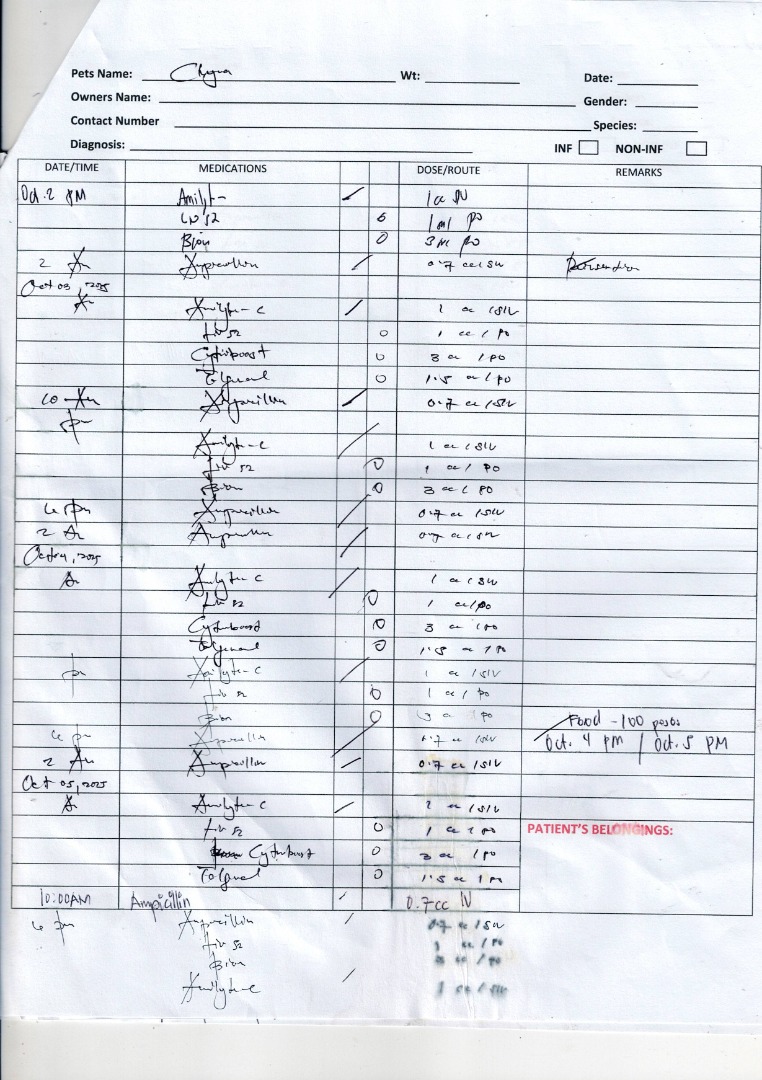 Pets Name: Chyna Wt: Date:
Owners Name: Gender:
Contact Number Species:
Diagnosis: INF NON-INF
DATE/TIME MEDICATIONS DOSE/ROUTE REMARKS
Oct. 2 PM 1cc IV
Liv 52 1ml PO
Bion PO
2 Am Ampicillin 0.7 cc / SIV
Oct 03, 2025
Am Amilyte-C 1 cc / SIV
Liv 52 1 cc / PO
Cytoboost 3 cc / PO
1.5 cc / PO
10 Am Ampicillin 0.7 cc / SIV
pm
Amilyte-C 1 cc / SIV
Liv 52 1 cc / PO
Bion 3 cc / PO
6 pm Ampicillin 0.7 cc / SIV
2 Am Ampicillin 0.7 cc / SIV
Oct 04, 2025
Am Amilyte-C 1 cc / SIV
Liv 52 1 cc / PO
3 cc / PO
1.5 cc / PO
pm Amilyte-C 1 cc / SIV
Liv 52 1 cc / PO
Bion 3 cc / PO
Food - 100
6 pm Ampicillin 0.7 cc / SIV Oct. 4 PM / Oct. 5 PM
2 Am Ampicillin 0.7 cc / SIV
Oct 05, 2025
Am Amilyte C cc / SIV
Liv 52 1 cc / PO PATIENT'S BELONGINGS:
Cytoboost 3 cc / PO
1.5 cc / PO
10:00AM Ampicillin 0.7cc IV
6 pm Ampicillin 0.7 cc / SIV
Liv 52 1 cc / PO
Bion 3 cc / PO
Amilyte-C 1 cc / SIV